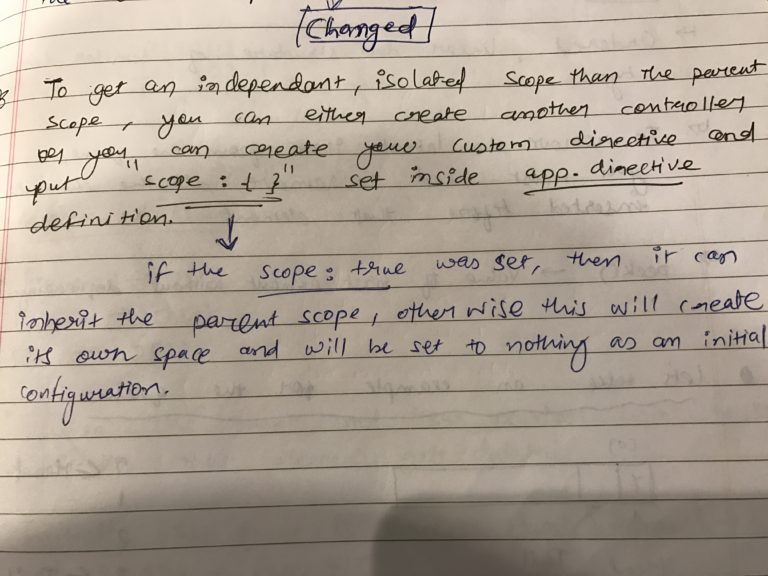 Changed
To get an independant, isolated scope than the parent
scope, you can either create another controller
or you can create your custom directive and
put "scope : { }" set inside app.directive
definition.
if the scope: true was set, then it can
inherit the parent scope, otherwise this will create
its own space and will be set to nothing as an initial
configuration.